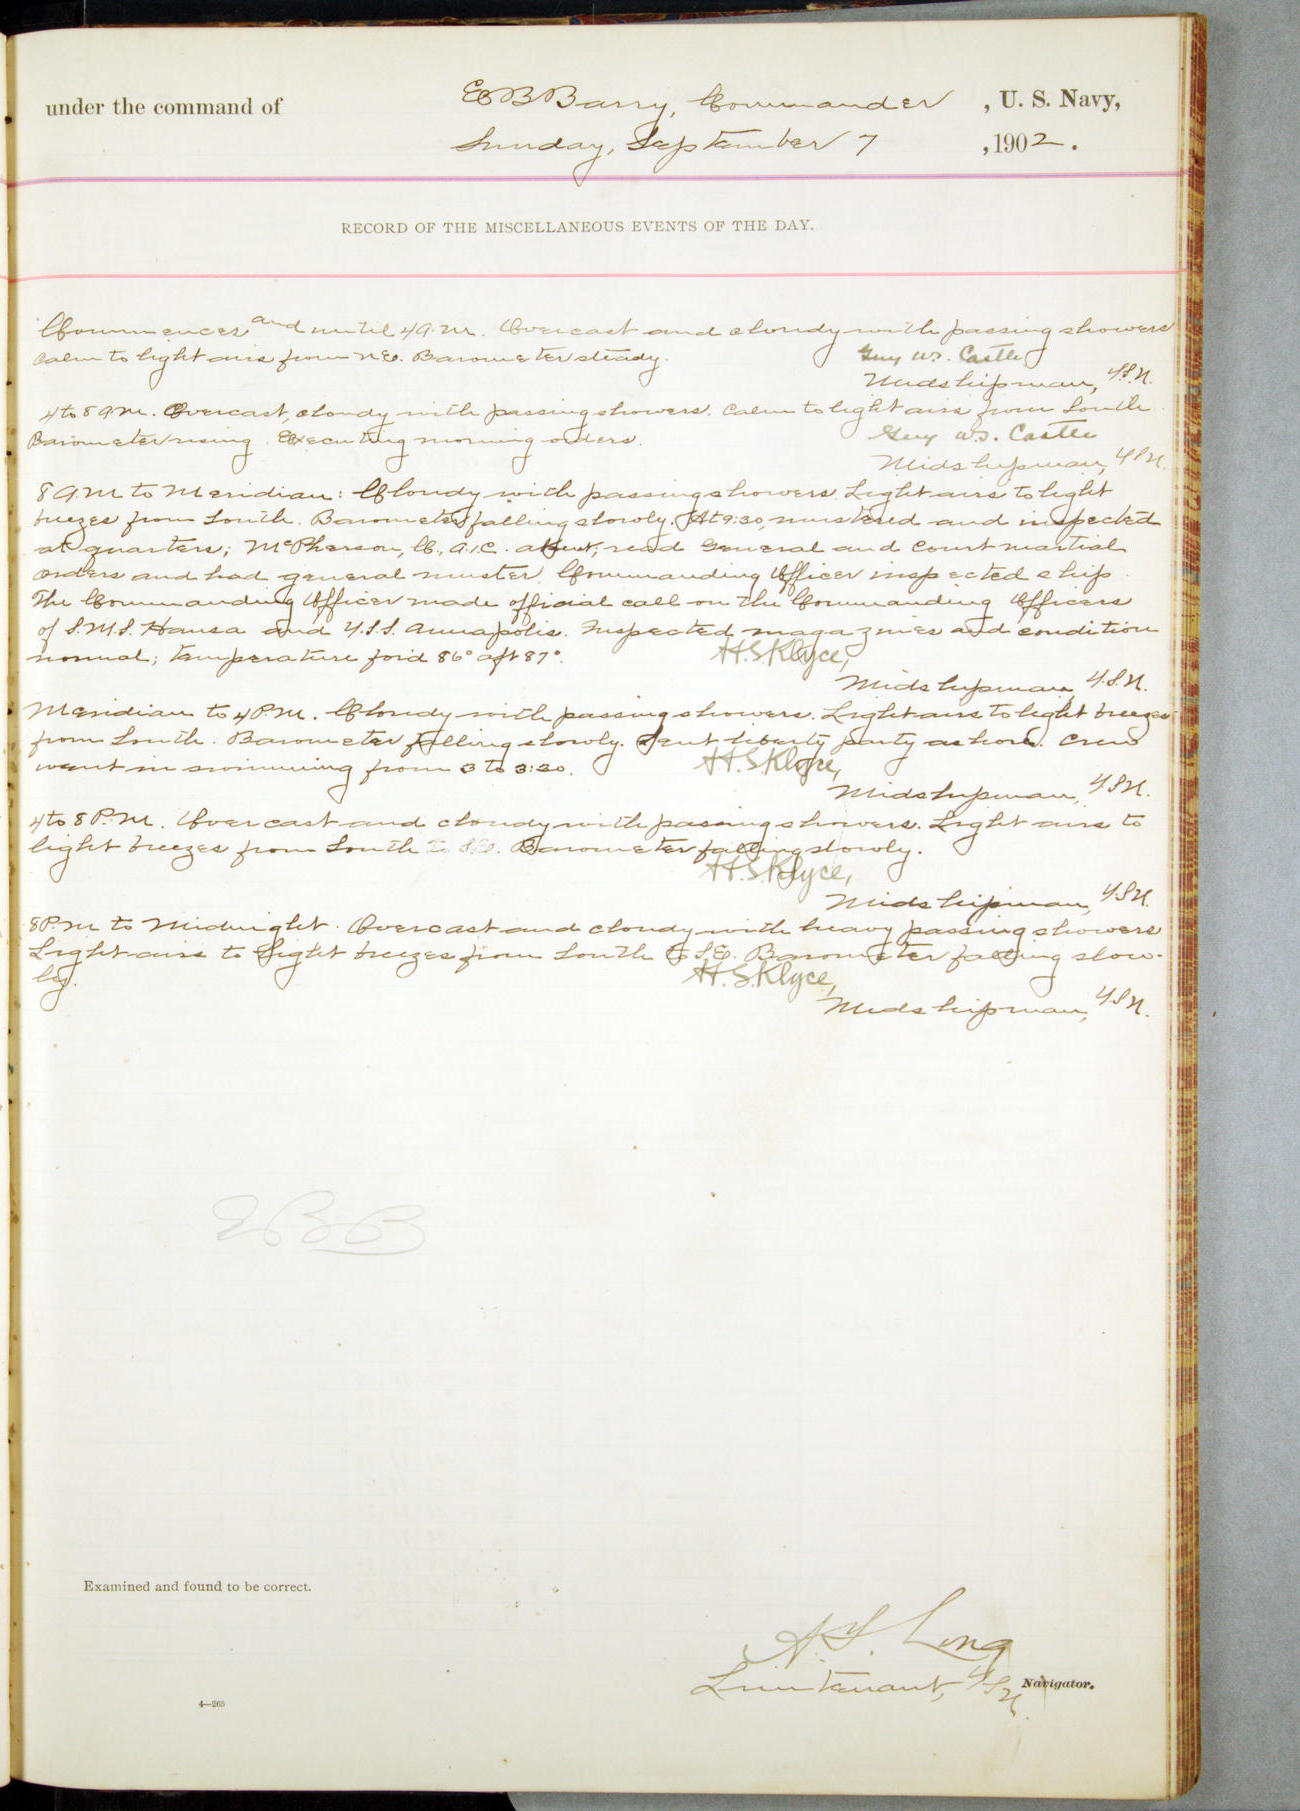 under the command of E B Barry, Commander, U. S. Navy,
Sunday, September 7, 1902.
RECORD OF THE MISCELLANEOUS EVENTS OF THE DAY.
Commences and until 4 A.M. Overcast and cloudy with passing showers
Calm to light airs from N.E. Barometer steady.
Guy W.S. Castle
Midshipman, U.S.N.
4 to 8 A.M. Overcast, cloudy with passing showers. Calm to light airs from South.
Barometer rising. Executing morning orders.
Guy W.S. Castle
Midshipman, U.S.N.
8 A.M. to Meridian: Cloudy with passing showers. Light airs to light
breezes from South. Barometer falling slowly. At 9:30, mustered and inspected
at quarters; McPherson, C., A.C. absent; read General and Court martial
orders and had general muster. Commanding Officer inspected ship.
The Commanding Officer made official call on the Commanding Officers
of S.M.S. Hansa and U.S.S. Annapolis. Inspected magazines and condition
normal; temperature for'd 86° aft 87°.
H.S. Klyce,
Midshipman, U.S.N.
Meridian to 4 P.M. Cloudy with passing showers. Light airs to light breezes
from South. Barometer falling slowly. Sent liberty party ashore. Crew
went in swimming from 3 to 3:30.
H.S. Klyce,
Midshipman, U.S.N.
4 to 8 P.M. Overcast and cloudy with passing showers. Light airs to
light breezes from South to S.E. Barometer falling slowly.
H.S. Klyce,
Midshipman, U.S.N.
8 P.M. to Midnight. Overcast and cloudy with heavy passing showers
Light airs to light breezes from South to S.E. Barometer falling slow-
ly.
H.S. Klyce,
Midshipman, U.S.N.
EBB
Examined and found to be correct.
A. T. Long
Lieutenant, U.S.N. Navigator.
4—265